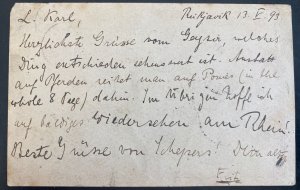 L. Karl, Reikjavik 13. V. 93
Herzlichste Grüsse vom Geyser, welches
Ding entschieden sehenswert ist. Anstatt
auf Pferden reitet man auf Ponies (in the
whole 8 Tage) dahin. Im Übrigen hoffe ich
auf baldiges Wiedersehen am Rhein!
Beste Grüsse von Schepers! Dein alter
Fritz